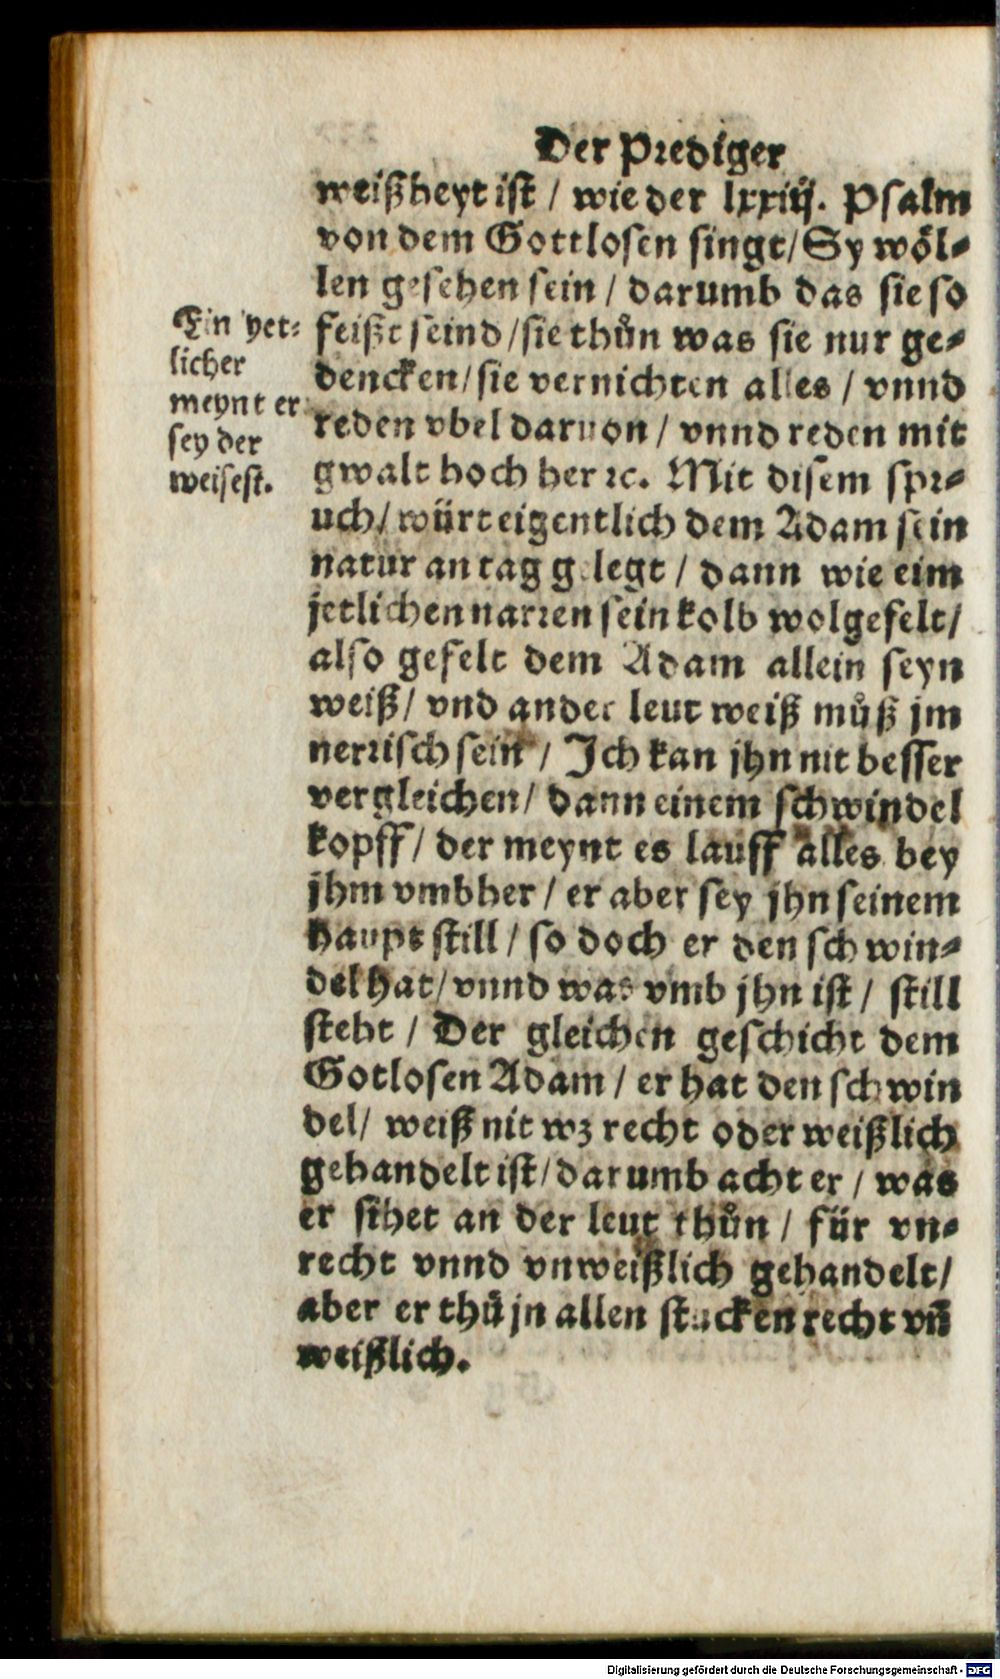 Der Prediger
weißheyt ist / wie der lxxiij. Psalm
von dem Gottlosen singt/Sy wöl-
len gesehen sein / darumb das sie so
feißt seind /sie thůn was sie nur ge-
dencken/sie vernichten alles / vnnd
reden vbel daruon / vnnd reden mit
gwalt hoch her ꝛc. Mit disem spr-
uch/ würt eigentlich dem Adam sein
natur an tag gelegt / dann wie eim
jetlichen narren sein kolb wolgefelt/
also gefelt dem Adam allein seyn
weiß/ vnd ander leut weiß můß jm
nerrisch sein / Ich kan jhn nit besser
vergleichen/ dann einem schwindel
kopff/ der meynt es lauff alles bey
jhm vmbher / er aber sey jhn seinem
haupt still / so doch er den schwin-
del hat/vnnd was vmb jhn ist / still
steht / Der gleichen geschicht dem
Gotlosen Adam / er hat den schwin
del/ weiß nit wz recht oder weißlich
gehandelt ist/darumb acht er / was
er sihet an der leut thůn / für vn-
recht vnnd vnweißlich gehandelt/
aber er thů jn allen stucken recht vn̄
weißlich.
Ein yet-
licher
meynt er
sey der
weisest.
Digitalisierung gefördert durch die Deutsche Forschungsgemeinschaft - DFG